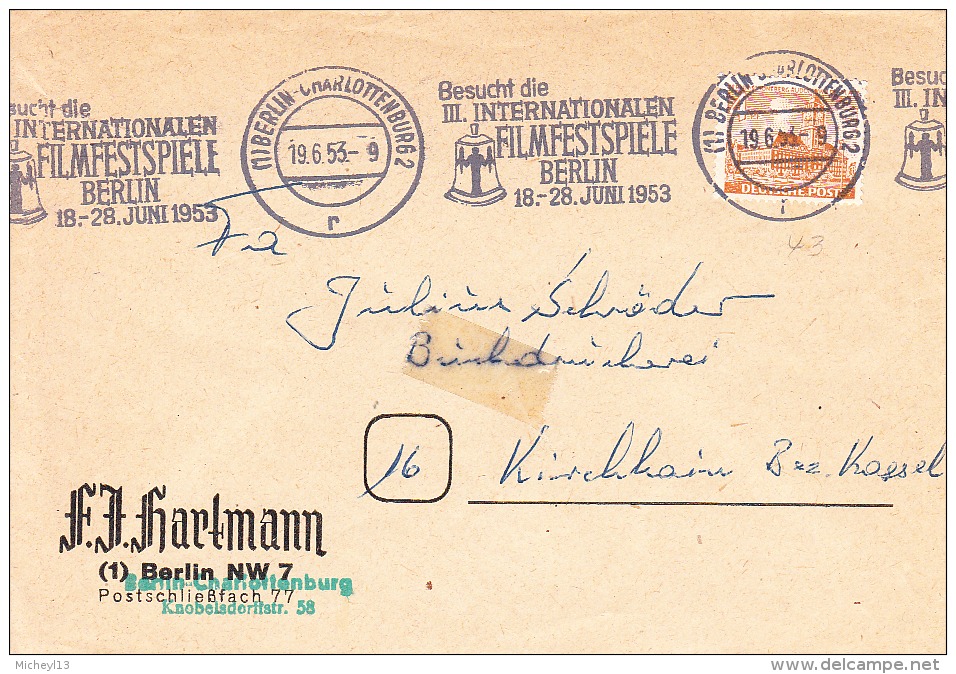 sucht die
INTERNATIONALEN
FILMFESTSPIELE
BERLIN
18.-28. JUNI 1953
(1) BERLIN-CHARLOTTENBURG 2
19.6.53.- 9
r
Besucht die
III. INTERNATIONALEN
FILMFESTSPIELE
BERLIN
18.-28. JUNI 1953
(1) BERLIN-CHARLOTTENBURG 2
19.6.53.- 9
r
DEUTSCHE POST
Besuc
III. IN
43
Fa
Julius Schröder
Buchdruckerei
16
Kirchhain Bez. Kassel
F.J. Hartmann
(1) Berlin NW 7
Berlin-Charlottenburg
Postschließfach 77
Knobelsdorffstr. 58
Micheyl13
delcampe.net